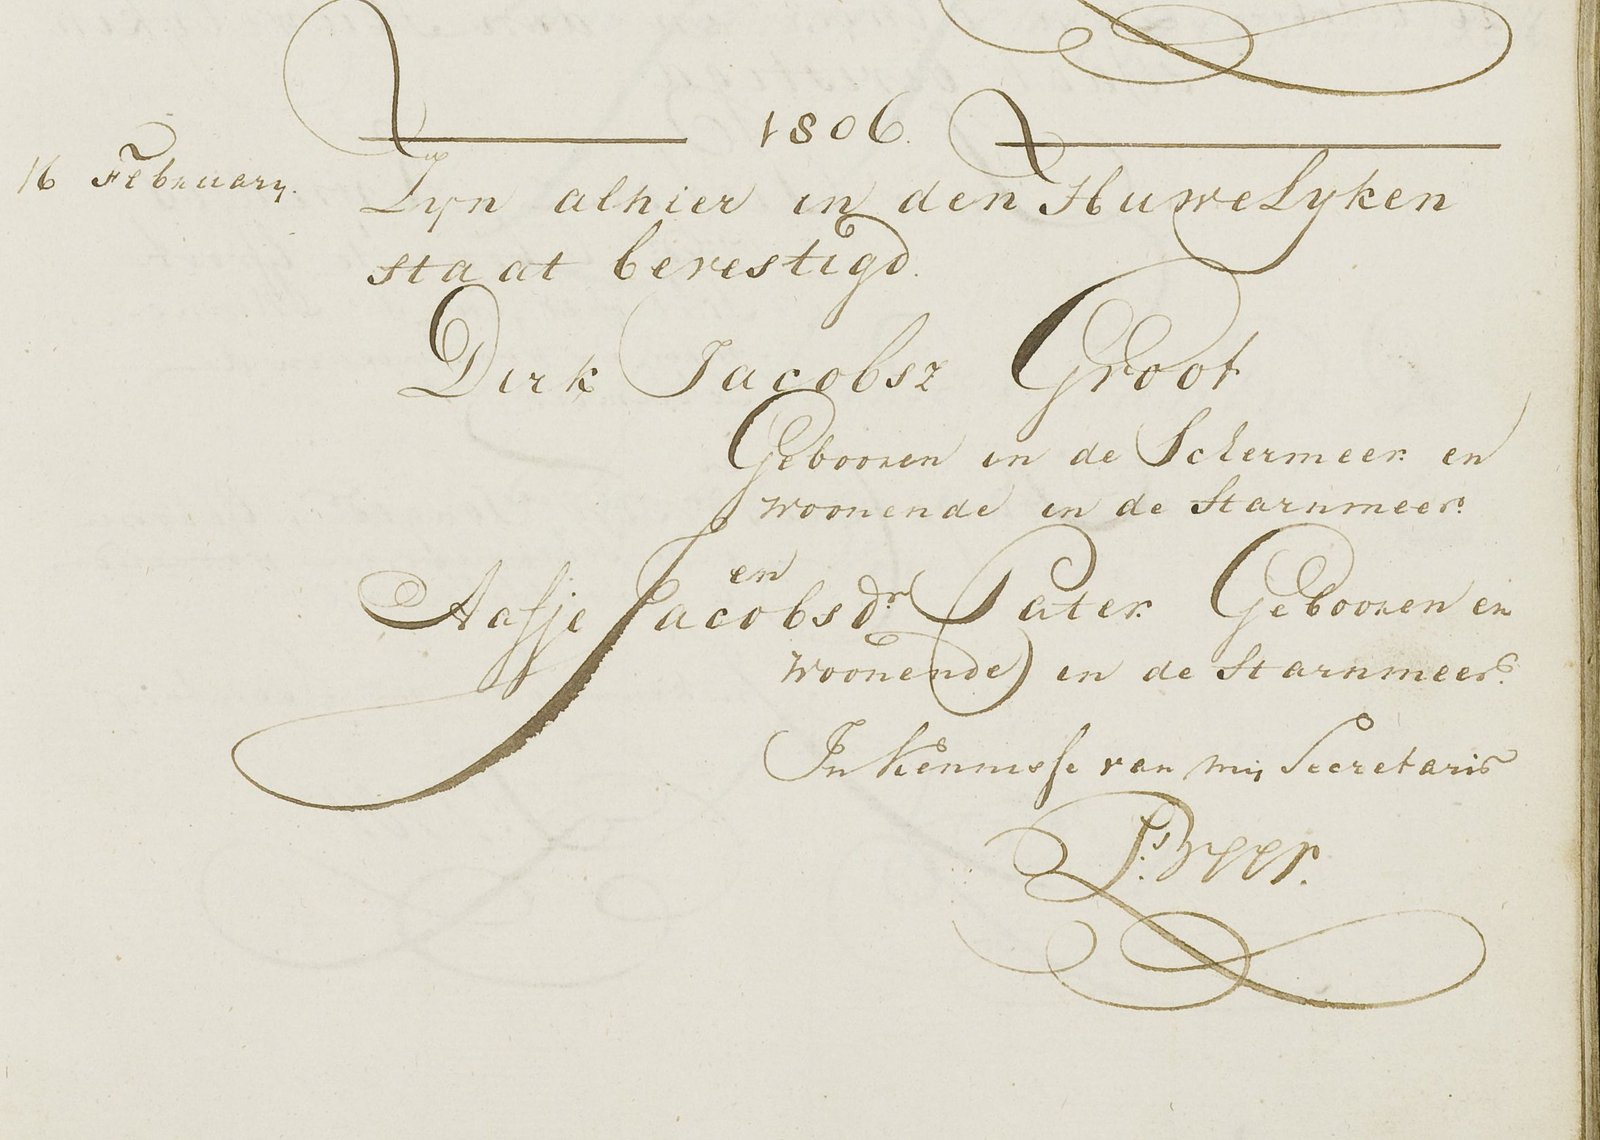 1806.
16 February.
Zyn alhier in den Huwelyken
staat bevestigd.
Dirk Jacobsz Groot
Gebooren in de Schermeer en
woonende in de Starnmeer.
en
Aafje Jacobsdr. Pater Gebooren en
woonende in de Starnmeer.
In Kennisse van mij Secretaris